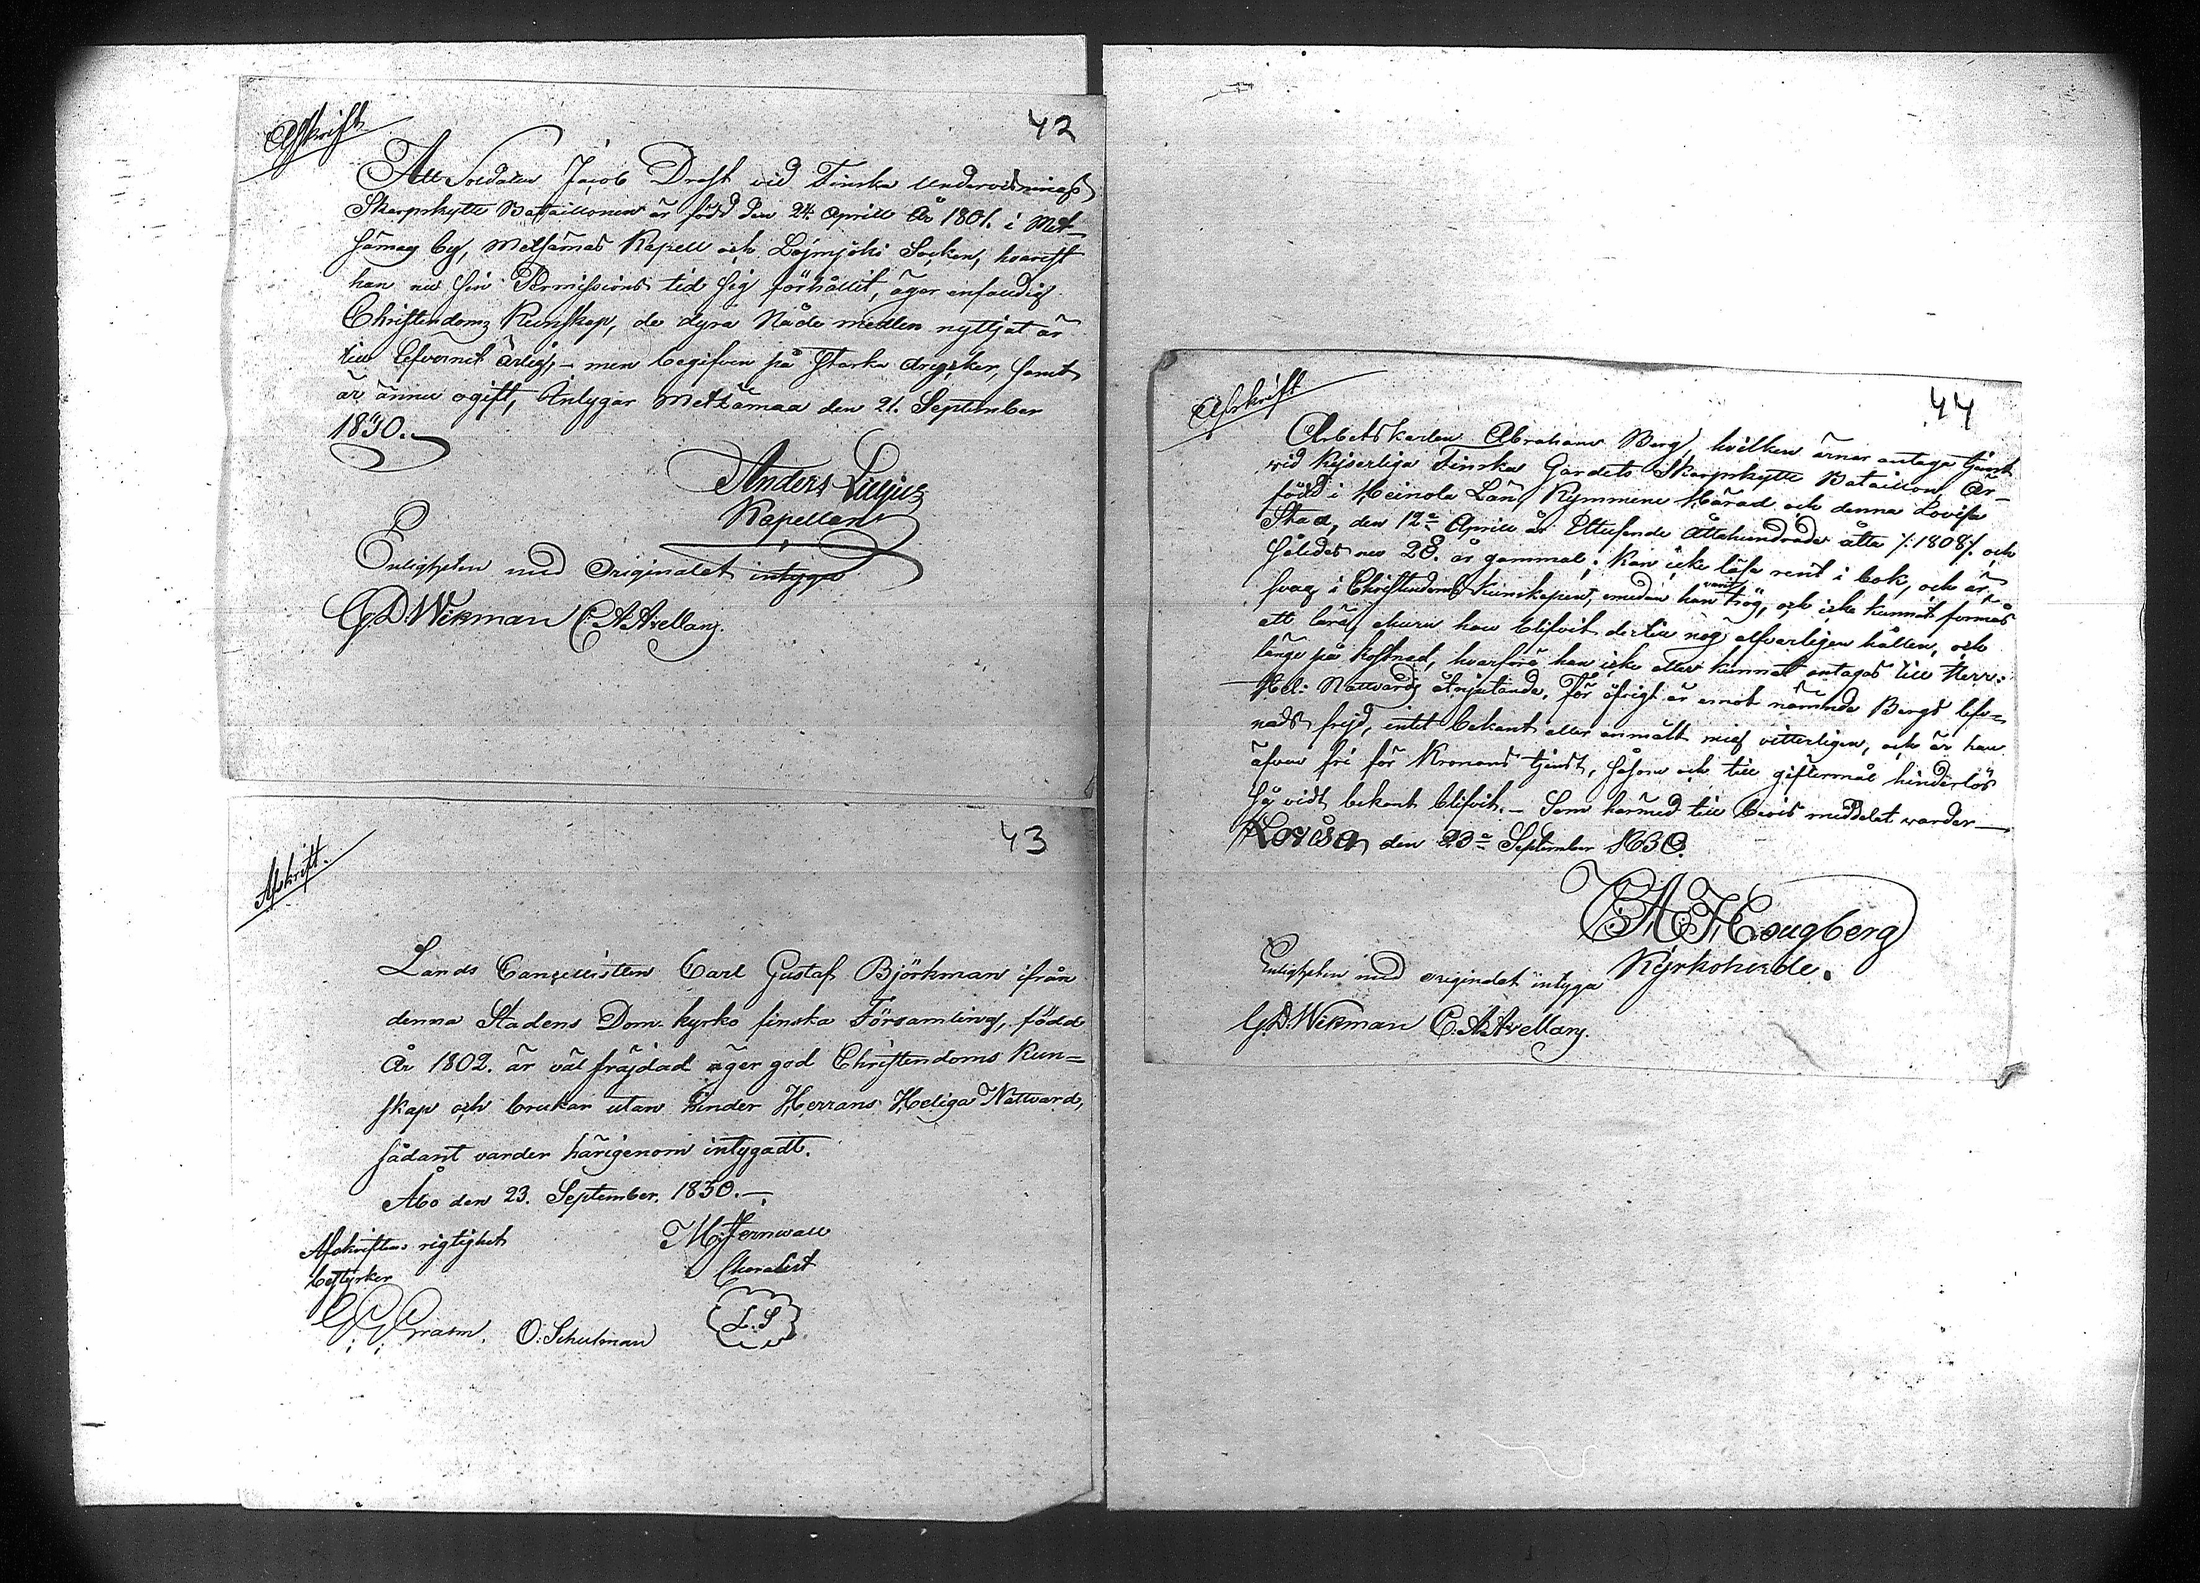 42
Afskrift
Att Soldaten Jacob Drest vid Finska Undervisnings
Skarpskytte Bataillonen är född den 24 Aprill År 1801. i Met-
sämaa by, Metsämas Kapell och Loimjoki Socken, hvarest
han nu sin Permissions tid sig förhållit, äger enfaldig
Christendoms Kunskap, de dyra Nåde medlen nyttjat är
till lefvernet ärlig, – men begifven på starka drycker, samt
är ännu ogift, Intygar Metsämaa den 21. September
1830.
Anders Lilius
Kapellan
Enligheten med Originalet intyga
G.D. Wikman C A Avellan.
43
Afskrift.
Lands Cancellisten Carl Gustaf Björkman ifrån
denna Stadens Dom kyrko finska Församling, född
År 1802. är väl fräjdad äger god Christendoms Kun=
skap och brukar utan hinder Herrans Heliga Nattvard,
sådant varder härigenom intygadt.
Åbo den 23. September. 1830.–
Afskriftens rigtighet
bestyrker
Mjfernwall
Choralist
L.S
O. Schulman
44
Afskrift
Arbets karlen Abraham Berg, hvilken ärnar antaga tjenst
vid Kejserliga Finska Gardets Skarpskytte Bataillon, är
född i Heinola Län, Kymmene Härad och denna Lovisa
Stad, den 12e Aprill år Ettusende Åttahundrade åtta /:1808/: och
således nu 28. år gammal; kan icke läsa rent i bok, och är
svag i Christendoms kunskapen, emedan han varit trög, och icke kunnat förmås
att lära, ehuru han blifvit dertill nog alfvarligen hållen, och
länge på kostnad, hvarföre han icke eller kunnat antagas till Herr:
Hel: Nattvards åtnjutande. För öfrigt är emot nämnde Bergs lef=
nads frejd, intet bekant eller anmält mig vitterligen, och är han
äfven fri för Kronans tjenst, såsom och till giftermål hinderlös
så vidt bekant blifvit.– Som härmed till bevis meddelat varder–
Lovisa den 23e September 1830.
C.A. Hougberg
Kyrkoherde.
Enligheten med originalet intyga
G.D. Wikman C.A. Avellan.